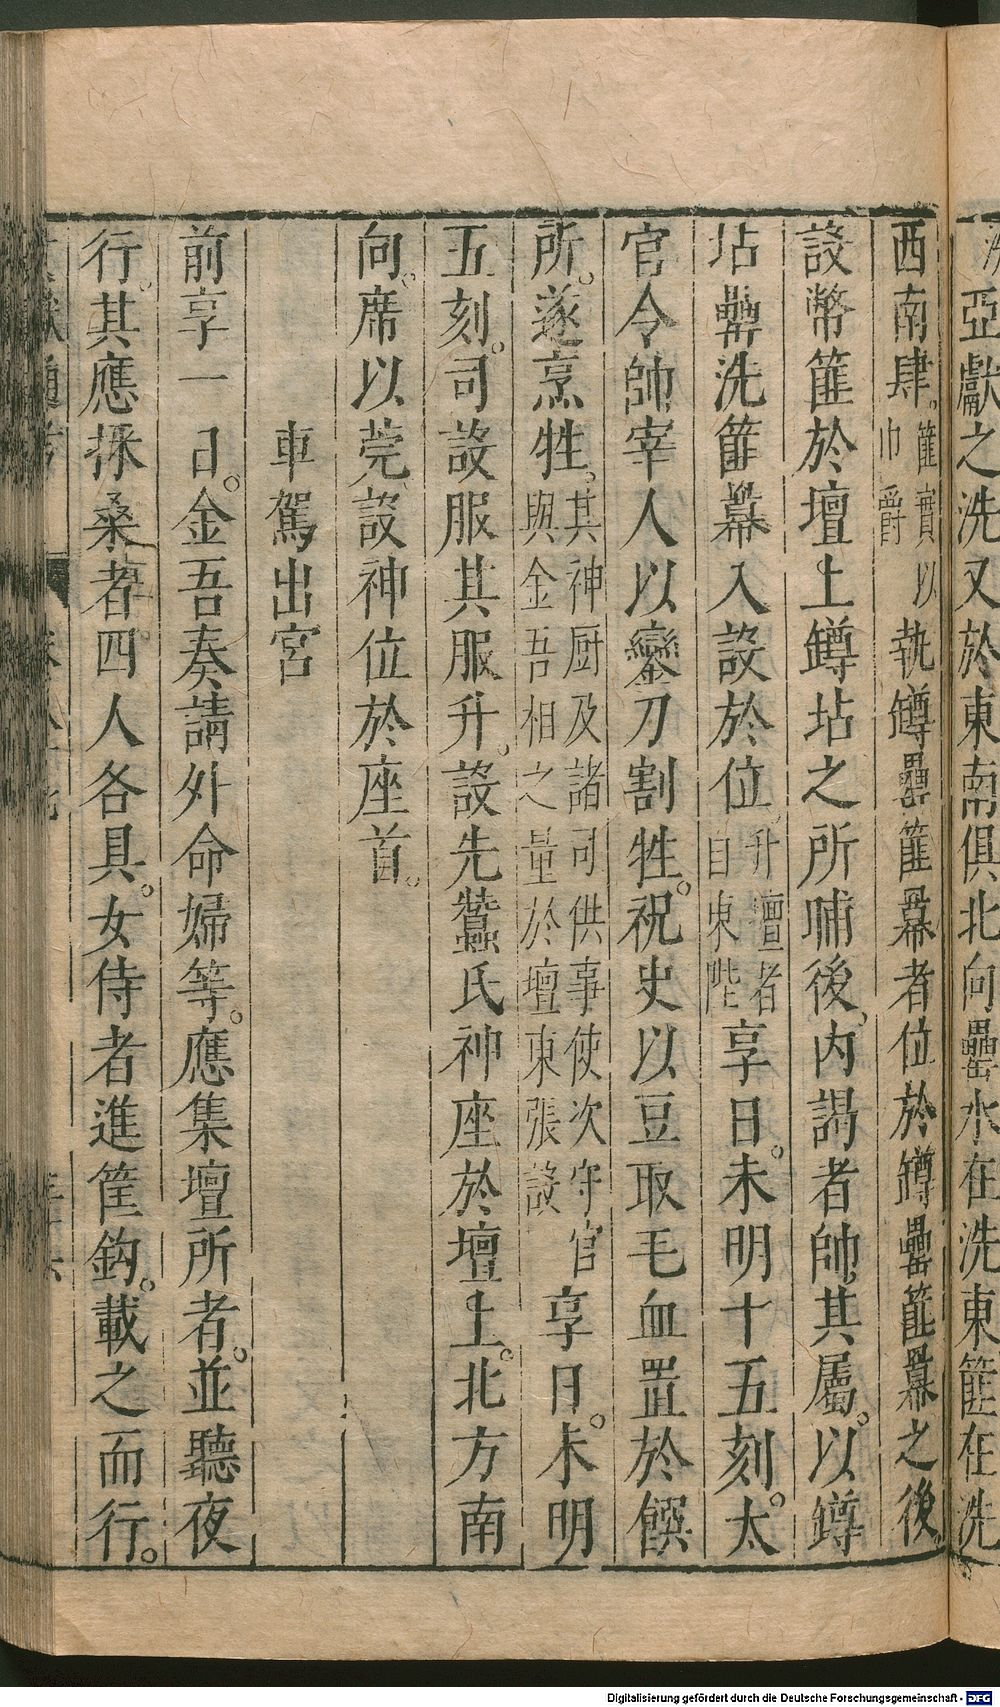 亞獻之洗又於東南俱北向罍水在洗東篚在洗
西南肆。篚實以巾爵執鐏罍篚冪者位於鐏罍篚冪之後
設幣篚於壇上鐏坫之所晡後內謁者帥其屬。以鐏
坫罍洗篚冪入設於位升壇者自東陛享日。未明十五刻。太
官令帥宰人以鑾刀割牲。祝史以豆取毛血置於饌
所。遂烹牲。其神厨及諸司供事使次守官與金吾相之量於壇東張設享日。未明
五刻。司設服其服升。設先蠶氏神座於壇上。北方南
向。席以莞設神位於座首。
車駕出宮
前享一日。金吾奏請外命婦等。應集壇所者。並聽夜
行。其應採桑者四人各具。女侍者進筐鈎。載之而行。
Digitalisierung gefördert durch die Deutsche Forschungsgemeinschaft - DFG